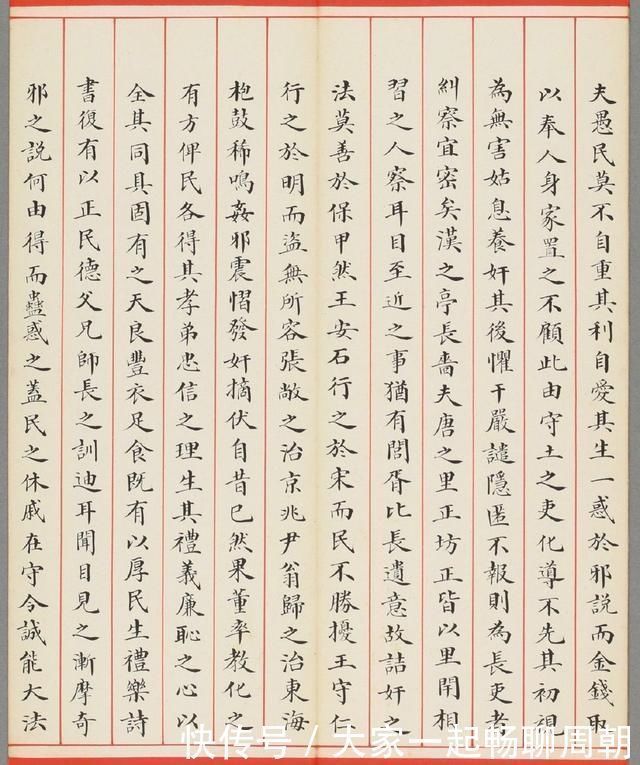 夫愚民莫不自重其利自愛其生一惑於邪說而金錢取
以奉人身家置之不顧此由守土之吏化導不先其初視
為無害姑息養奸其後懼干嚴譴隱匿不報則為長吏者
糾察宜密矣漢之亭長嗇夫唐之里正坊正皆以里閈相
習之人察耳目至近之事猶有閭胥比長遺意故詰奸之
法莫善於保甲然王安石行之於宋而民不勝擾王守仁
行之於明而盜無所容張敞之治京兆尹翁歸之治東海
枹鼓稀鳴姦邪震慴發奸摘伏自昔已然果董率教化之
有方俾民各得其孝弟忠信之理生其禮義廉恥之心以
全其同具固有之天良豐衣足食既有以厚民生禮樂詩
書復有以正民德父兄師長之訓迪耳聞目見之漸摩奇
邪之說何由得而蠱惑之蓋民之休戚在守令誠能大法
快传号 / 大家一起畅聊周朝